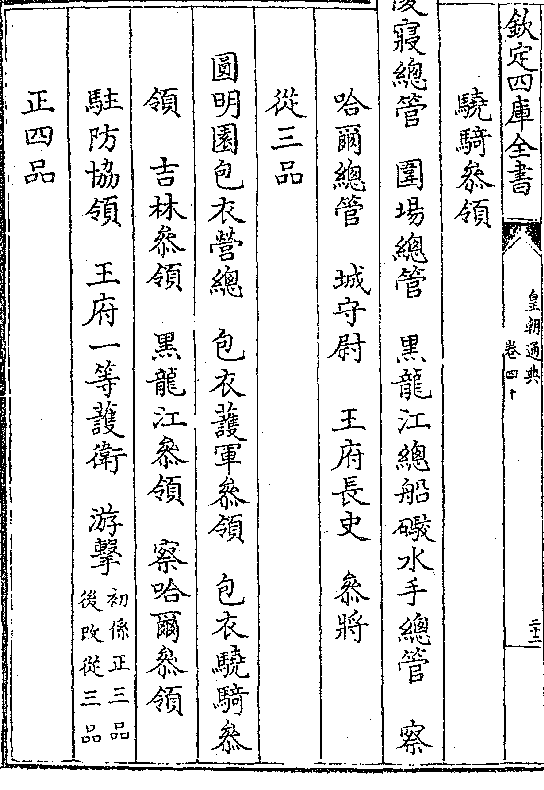 欽定四庫全書
皇朝通典
卷四十
二十二
驍騎叅領
陵寢總管　圍場總管　黒龍江總船礮水手總管　察
哈爾總管　城守尉　王府長史　叅將
從三品
圓明園包衣營總　包衣護軍叅領　包衣驍騎叅
領　吉林叅領　黒龍江叅領　察哈爾叅領
駐防協領　王府一等護衛　游擊初係正三品
後改從三品
正四品